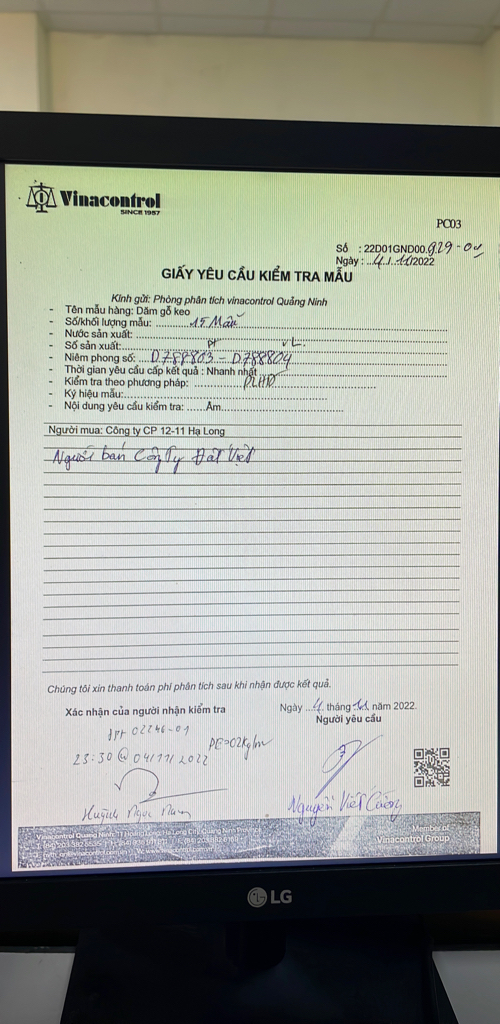 Vinacontrol
SINCE 1957
PC03
Số : 22D01GND00.929-04
Ngày : 4/11/2022
GIẤY YÊU CẦU KIỂM TRA MẪU
Kính gửi: Phòng phân tích vinacontrol Quảng Ninh
- Tên mẫu hàng: Dăm gỗ keo
- Số/khối lượng mẫu: 15 Mẫu
- Nước sản xuất:
- Số sản xuất: pt vL.
- Niêm phong số: D788803 - D788804
- Thời gian yêu cầu cấp kết quả : Nhanh nhất
- Kiểm tra theo phương pháp: PLHĐ
- Ký hiệu mẫu:
- Nội dung yêu cầu kiểm tra: ......Ẩm
Người mua: Công ty CP 12-11 Hạ Long
Người bán Công Ty Đất Việt
Chúng tôi xin thanh toán phí phân tích sau khi nhận được kết quả.
Xác nhận của người nhận kiểm tra
Ngày 4 tháng 11 năm 2022.
Người yêu cầu
02246-01
PE>02kg/m
23:30 @ 04/11/2022
Huỳnh Ngọc
Nguyễn Việt Cường
Vinacontrol Quang Ninh: 11 Hoang Long, Ha Long City, Quang Ninh Province
Member of
Vinacontrol Group
LG